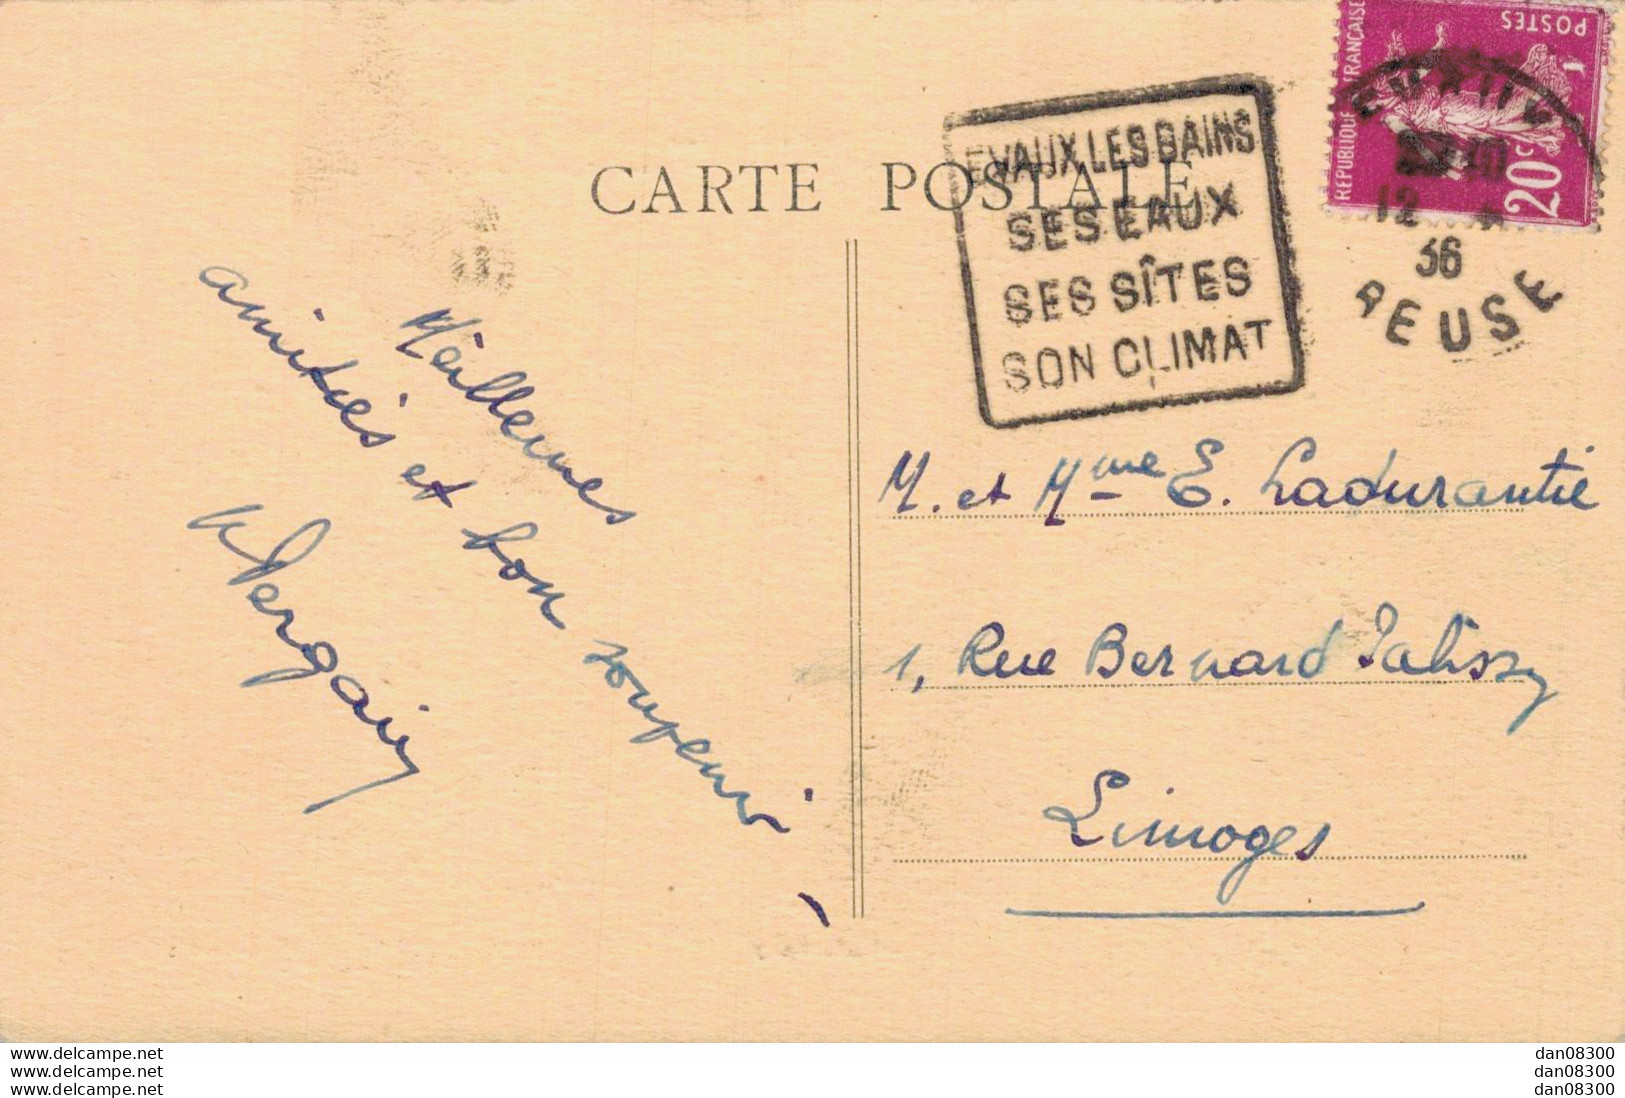 CARTE POSTALE
EVAUX LES BAINS
SES EAUX
SES SÎTES
SON CLIMAT
REPUBLIQUE FRANÇAISE
POSTES
20c
12
36
REUSE
Meilleures
amitiés et bon souvenir
M. et Mme E. Ladurantie
1, Rue Bernard Palissy
Limoges
www.delcampe.net
www.delcampe.net
www.delcampe.net
dan08300
dan08300
dan08300